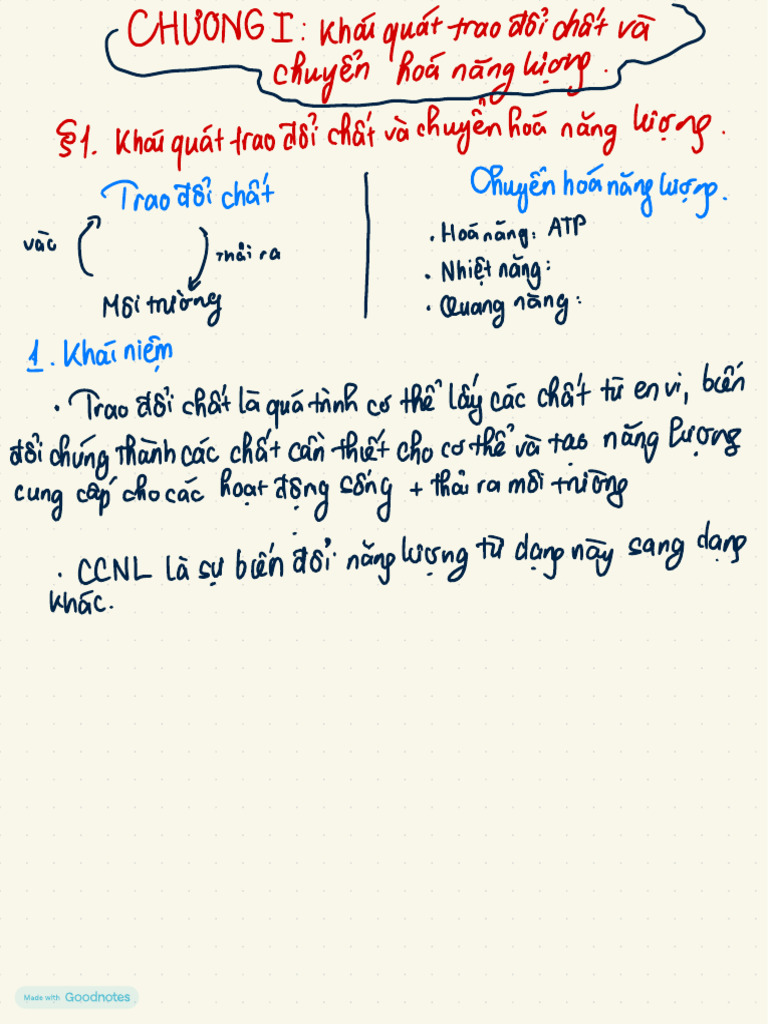 CHƯƠNG I: Khái quát trao đổi chất và
chuyển hoá năng lượng.
§1. Khái quát trao đổi chất và chuyển hoá năng lượng.
Trao đổi chất
vào
thải ra
Môi trường
Chuyển hoá năng lượng.
· Hoá năng: ATP
· Nhiệt năng:
· Quang năng:
1. Khái niệm
· Trao đổi chất là quá trình cơ thể lấy các chất từ en vi, biến
đổi chúng thành các chất cần thiết cho cơ thể và tạo năng lượng
cung cấp cho các hoạt động sống + thải ra môi trường
· CCNL là sự biến đổi năng lượng từ dạng này sang dạng
khác.
Made with Goodnotes